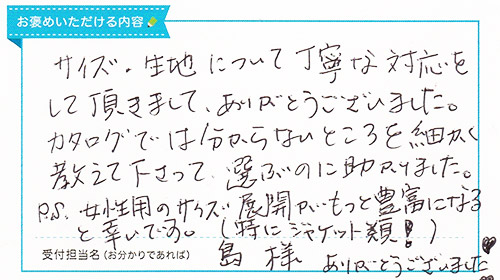 お褒めいただける内容
サイズ・生地について丁寧な対応を
して頂きまして、ありがとうございました。
カタログでは分からないところを細かく
教えて下さって、選ぶのに助かりました。
P.S. 女性用のサイズ展開がもっと豊富になる
と幸いです。(特にジャケット類!)
受付担当名(お分かりであれば) 島 様 ありがとうございました